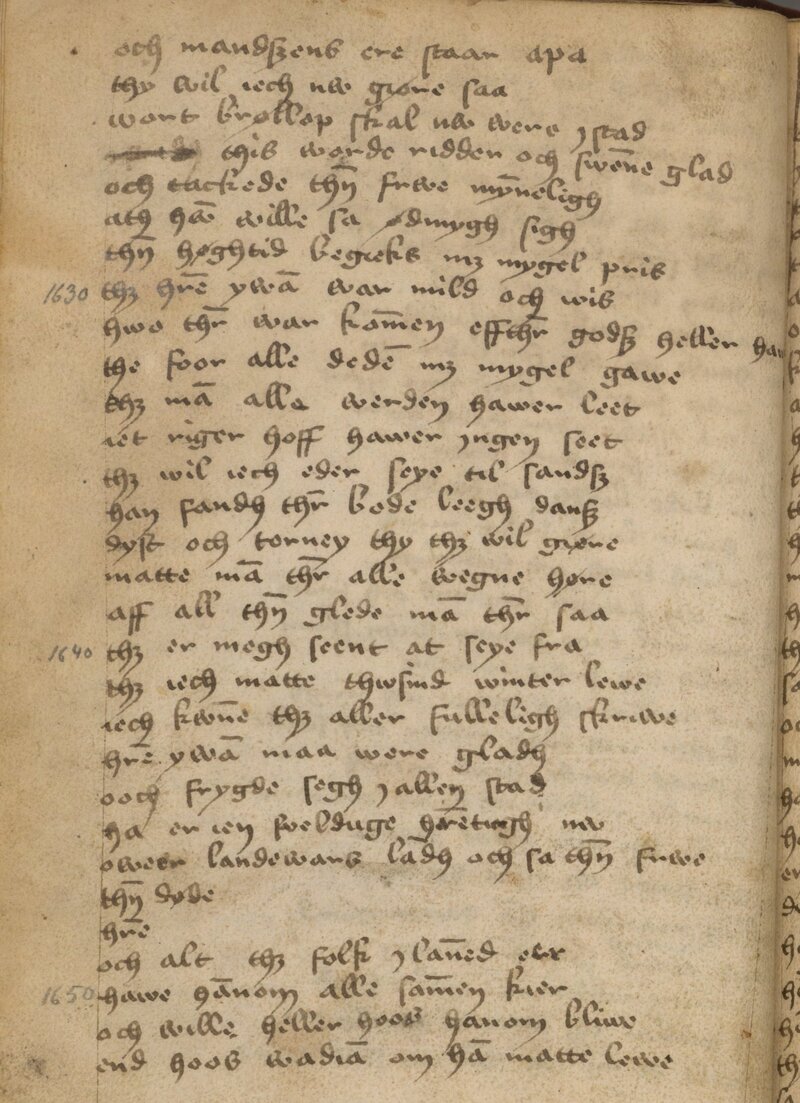 och mandszens ere staar apa
thy wil iech nw giøre saa
wort brøllop skal nw were j stad
this worde ridder och swēne glad
och tackede thn̄ frwe mȳneligh
ath hā wille sa ødmygh sigh
thn̄ høghtid begieks mz mygel pris
1630 thz hrē ywā war mild och wis
hwo thr̄ war kom̄en effthr̄ godz heller
the foor alle dedē mz mygel gawe
thz mā alla werden hawer leet
iet riger hoff hawer jngen seet
thz wil iech eder seye til sandz
han fandh thr̄ bode leegh dansz
dyst och torney thy thz wil giøre
matte mā thr̄ alle wegne høre
aff all thn̄ glede mā thr̄ saa
1640 thz er megh seent at seye fra
thz iech matte thwsind winter lewe
iech kwn̄e thz aller fulleligh skriwe
hrē ywā maa were gladh
ooch frygde segh j allen stad
ha er ien welduge hērtugh nw
oweer landewans lādh och sa thn̄ frwe
thn̄ døde
hrē
och alt thz folk j lan̄ed eer
1650 hawe hān̄om alle sam̄en kier
och wille heller hoos hanom bliwe
end hoos wadiā om hā matte lewe